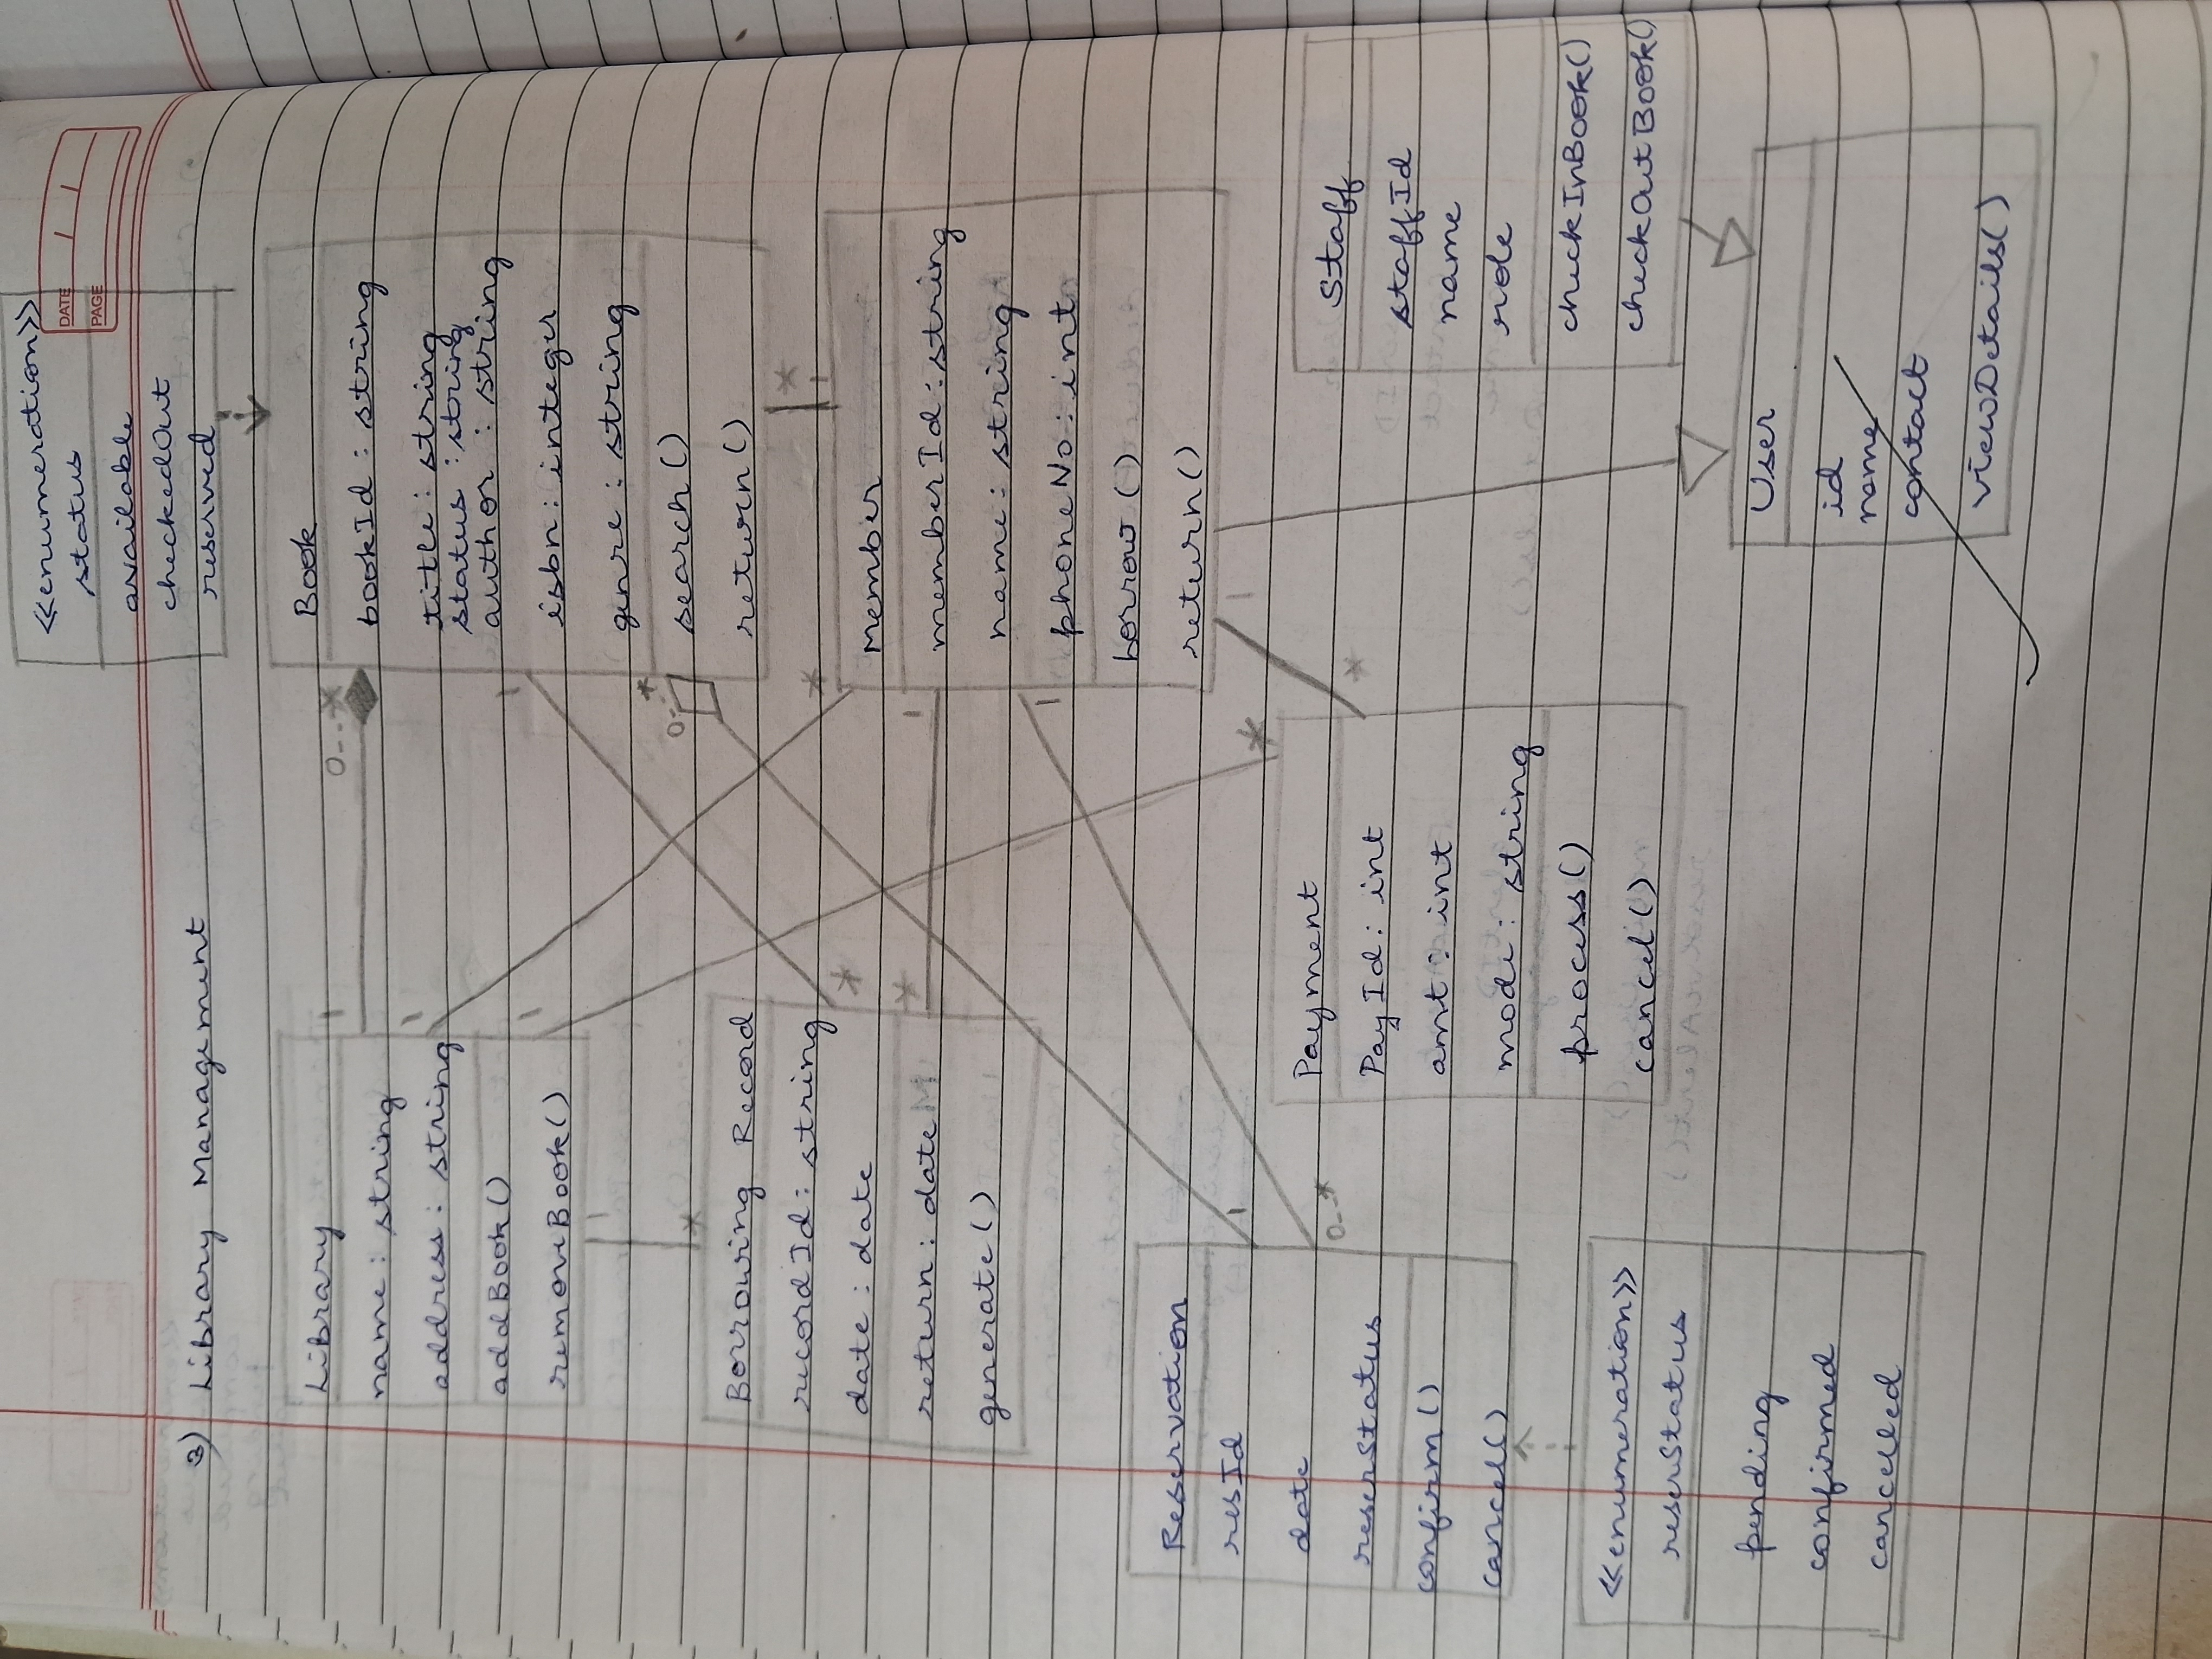 <<enumeration>>
status
available
checkedOut
reserved
DATE / /
PAGE
3) Library Management
Library
name : string
address : string
addBook()
removeBook()
1
0--*
1
1
1
*
Book
bookId : string
title : string
status : string
author : string
isbn : integer
genre : string
search()
return()
1
0--*
*
1
Borrowing Record
recordId : string
date : date
return : date
generate()
*
*
*
1
1
Member
memberId : string
name : string
phoneNo : int
borrow()
return()
1
Reservation
resId
date
reserStatus
confirm()
cancel()
1
0--*
Payment
PayId : int
amt : int
mode : string
process()
cancel()
*
*
Staff
staffId
name
role
checkInBook()
checkOutBook()
<<enumeration>>
reserStatus
pending
confirmed
cancelled
User
id
name
contact
viewDetails()